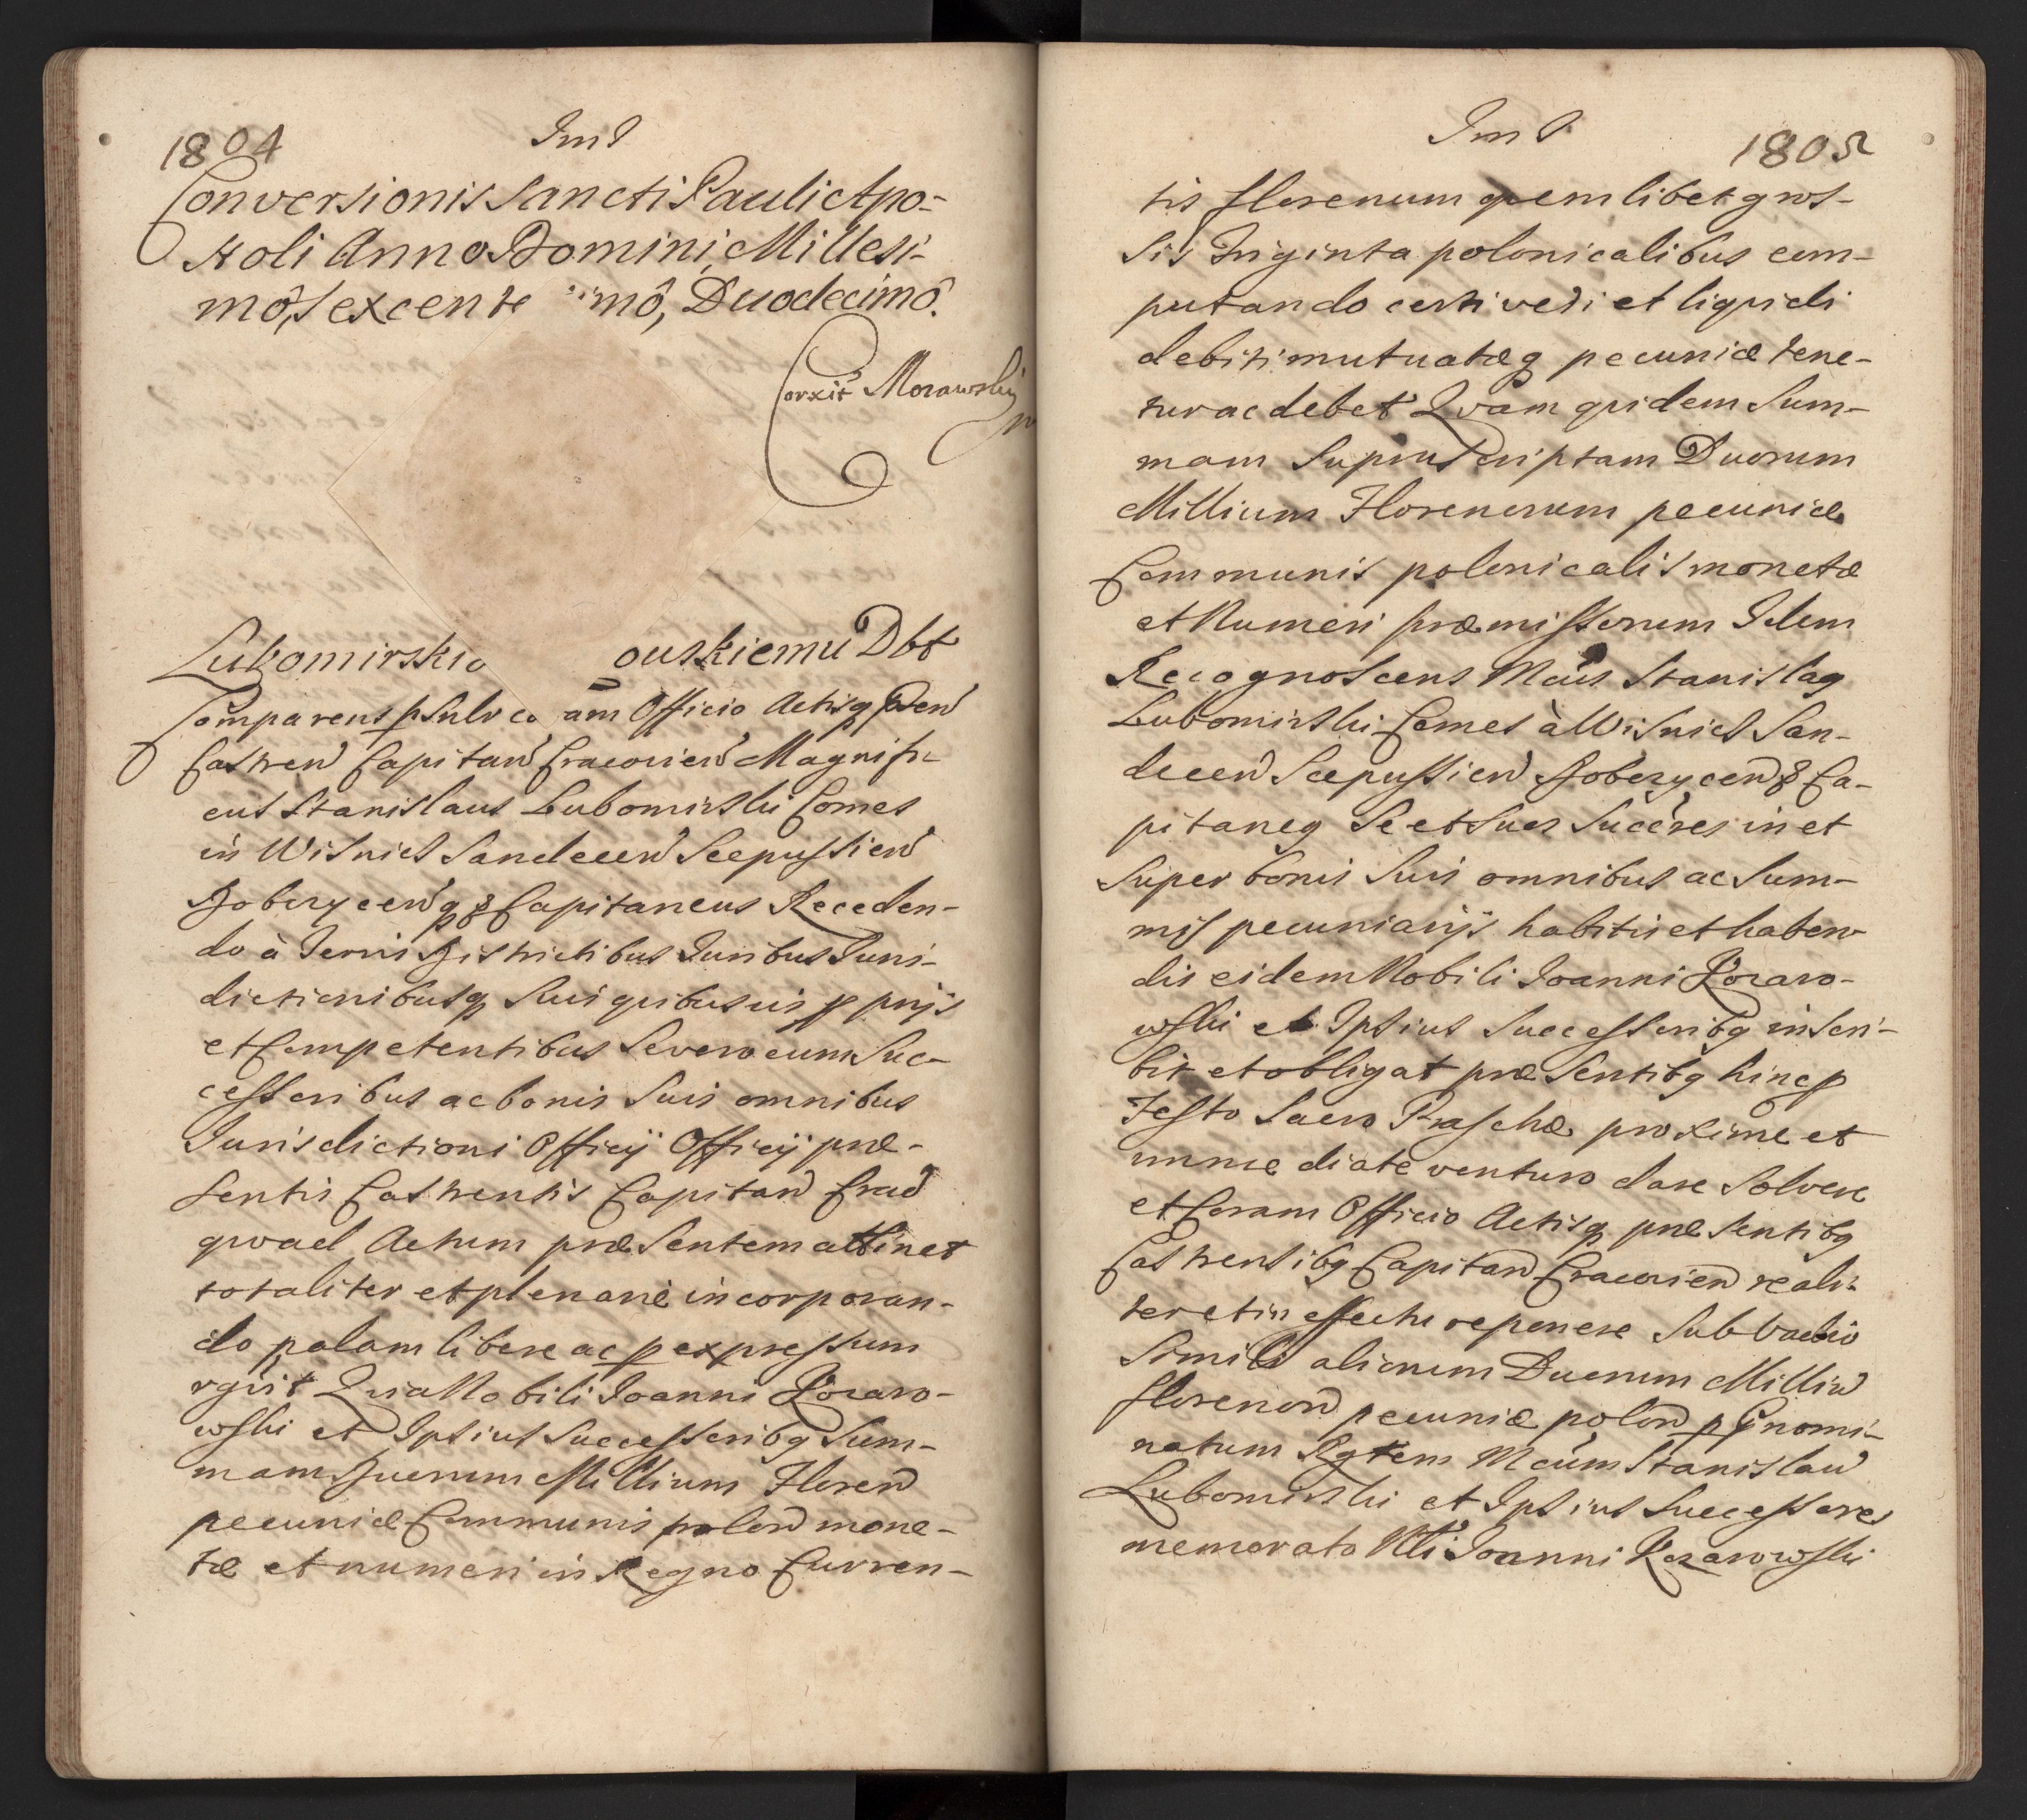 1804
Conversionis Sancti Pauli Apo-
stoli Anno Domini Millesi-
mô, Sexcente imô, Duodecimô.
Corxit Morawski
Lubomirski ouskiemu Dbt
Comparens psnlr co am Officio Actisq
Castren Capitan Cracovien Magnifi-
cus Stanislaus Lubomirski Comes
in Wisnicz Sandecen Scepussien
Dobczycen q Capitaneus Receden-
do à Terris Districtibus Juribus Juris-
dictionibusq Suis quibusvis pprijs
et Competentibus Se vero cum Suc-
cessoribus ac bonis Suis omnibus
Jurisdictioni Officij Officij præ-
sentis Castrensis Capitan Crac
qvoad Actum præsentem attinet
totaliter et plenariè incorporan-
do palam libere ac p expressum
rgvit Quia Nobili Joanni Kozaro-
wski et Ipsius Successoribq Sum-
mam Duorum Millium Floren
pecuniæ Communis polon mone-
tæ et numeri in Regno Curren-
1805
tis florenum quemlibet gros-
sis Triginta polonicalibus com-
putando certi veri et liquidi
debiti mutuatæq pecuniæ tene-
tur ac debet Qvam quidem Sum-
mam Suprascriptam Duorum
Millium Florenorum pecuniæ
Communis polonicalis monetæ
et Numeri præmissorum Idem
Recognoscens Mcus Stanislaq
Lubomirski Comes à Wisnicz San-
decen Scepussien Dobczycen Ca-
pitaneq Se et Suos Succres in et
Super bonis Suis omnibus ac Sum-
mis pecuniarijs habitis et haben-
dis eidem Nobili Joanni Kozaro-
wski et Ipsius Successoribq inscri-
bit et obligat præsentibq hinc p
Festo Sacro Paschæ proxime et
immediate venturo dare Solvere
et Coram Officio Actisq præsentibq
Castrensibq Capitan Cracovien reali-
ter et in effectu reponere Sub Vadio
Simili aliorum Duorum Milliu
florenor pecuniæ polon p nomi-
natum Rgtem Mcum Stanislau
Lubomirski et Ipsius Successores
memorato Nbli Joanni Kozarowski